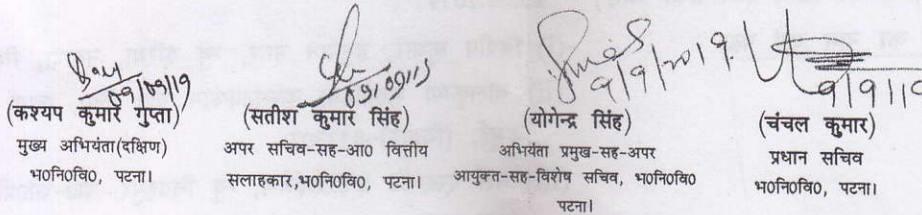 09/09/19
(कश्यप कुमार गुप्ता)
मुख्य अभियंता(दक्षिण)
भ0नि0वि0, पटना।
09/09/19
(सतीश कुमार सिंह)
अपर सचिव-सह-आ0 वित्तीय
सलाहकार,भ0नि0वि0, पटना।
9/9/2019
(योगेन्द्र सिंह)
अभियंता प्रमुख-सह-अपर
आयुक्त-सह-विशेष सचिव, भ0नि0वि0
पटना।
9/9/19
(चंचल कुमार)
प्रधान सचिव
भ0नि0वि0, पटना।